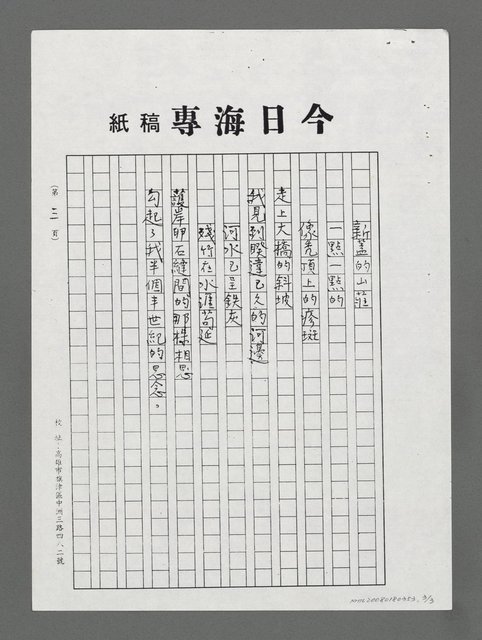 今日海專稿紙
新蓋的山莊
一點一點的
像禿頂上的疹斑
走上大橋的斜坡
我見到睽違已久的河邊
河水已呈鉄灰
殘竹在水涯苟延
護岸卵石縫間的那棵相思
勾起了我半個世紀的思念。
(第三頁)
校址:高雄市旗津區中洲三路四八二號
NML20080180353. 3/3